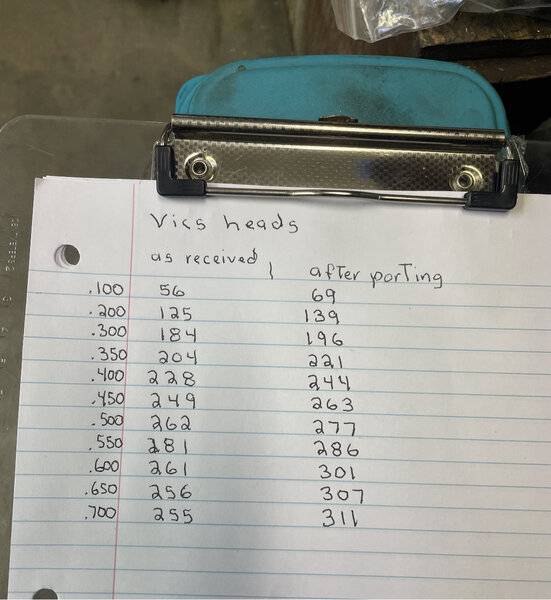 Vics heads
as received | after porting
.100 56 69
.200 125 139
.300 184 196
.350 204 221
.400 228 244
.450 249 263
.500 262 277
.550 281 286
.600 261 301
.650 256 307
.700 255 311